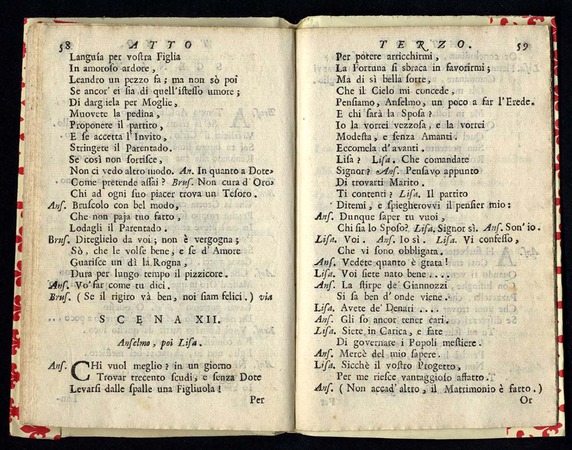 58 ATTO
Languía per vostra Figlia
In amoroso ardore,
Leandro un pezzo fa; ma non sò poi
Se ancor' ei sia di quell'istesso umore;
Di dargiela per Moglie,
Muovete la pedina,
Proponete il partito,
E se accetta l'Invito,
Stringete il Parentado.
Se così non sortisce,
Non ci vedo altro modo. An. In quanto a Dote
Come pretende assai? Brus. Non cura d'Oro
Chi ad ogni suo piacer trova un Tesoro.
Ans. Bruscolo con bel modo,
Che non paja tuo fatto,
Lodagli il Parentado.
Brus. Diteglielo da voi; non è vergogna;
Sò, che le volse bene, e se d'Amore
Guarisce un dì la Rogna,
Dura per lungo tempo il pizzicore.
Ans. Vo' far come tu dici.
Brus. (Se il rigiro và ben, noi siam felici.) via
SCENA XII.
Anselmo, poi Lisa.
Ans. CHi vuol meglio? in un giorno
Trovar trecento scudi, e senza Dote
Levarsi dalle spalle una Figliuola!
Per
TERZO. 59
Per potere arricchirmi,
La Fortuna si sbraca in favorirmi;
Ma di sì bella sorte,
Che il Cielo mi concede,
Pensiamo, Anselmo, un poco a far l'Erede.
E chi sarà la Sposa?
Io la vorrei vezzosa, e la vorrei
Modesta, e senza Amanti.
Eccomela d'avanti.
Lisa? Lisa. Che comandate
Signor? Ans. Pensavo appunto
Di trovarti Marito.
Ti contenti? Lisa. Il partito
Ditemi, e spiegherovvi il pensier mio:
Ans. Dunque saper tu vuoi,
Chi sia lo Sposo? Lisa. Signor sì. Ans. Son' io.
Lisa. Voi. Ans. Io sì. Lisa. Vi confesso,
Che vi sono obbligata.
Ans. Vedete quanto è grata!
Lisa. Voi siete nato bene....
Ans. La stirpe de' Giannozzi
Si sa ben d'onde viene.
Lisa. Avete de' Denati ....
Ans. Gli so ancor tener cari.
Lisa. Siete in Carica, e fate
Di governare i Popoli mestiere.
Ans. Mercè del mio sapere.
Lisa. Sicchè il vostro Progetto,
Per me riesce vantaggioso affatto.
Ans. (Non accad' altro, il Matrimonio è fatto.)
Or